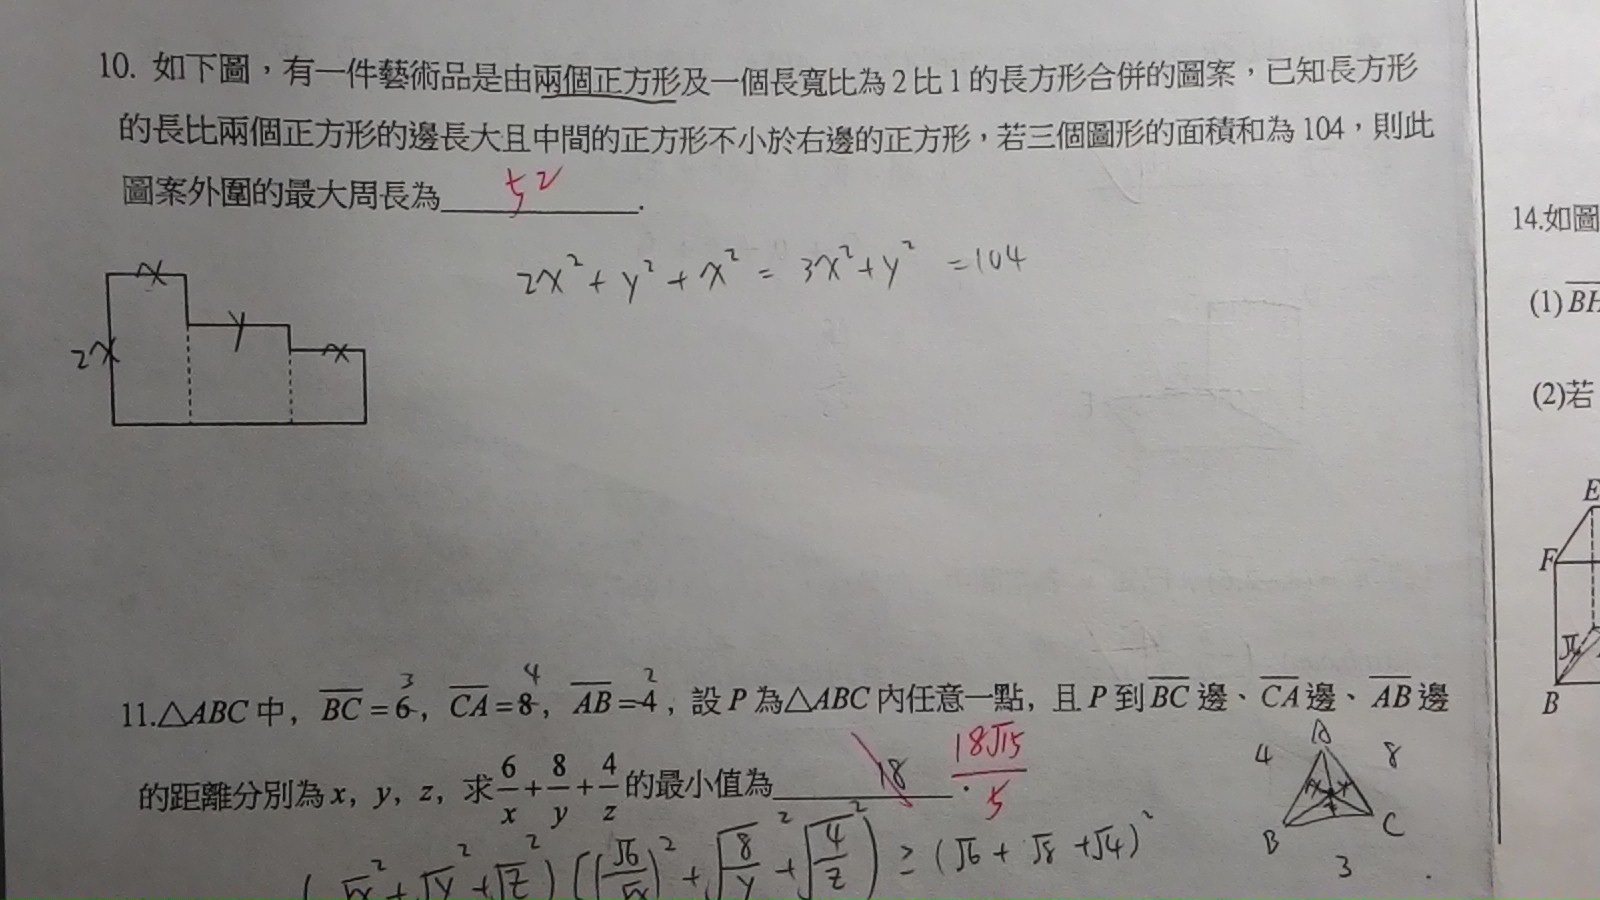 10. 如下圖，有一件藝術品是由兩個正方形及一個長寬比為 2 比 1 的長方形合併的圖案，已知長方形
的長比兩個正方形的邊長大且中間的正方形不小於右邊的正方形，若三個圖形的面積和為 104，則此
圖案外圍的最大周長為 52 .
2x² + y² + x² = 3x² + y² = 104
x
y
x
2x
11.△ABC 中，BC = 6，CA = 8，AB = 4，設 P 為△ABC 內任意一點，且 P 到 BC 邊、CA 邊、AB 邊
3 4 2
的距離分別為 x，y，z，求 6/x + 8/y + 4/z 的最小值為 18 18√15/5 .
(√x² + √y² + √z²) ((√6/√x)² + √(8/y)² + √(4/z)²) ≥ (√6 + √8 + √4)²
A
4 8
B C
3
14.如圖
(1) BH
(2)若
E
F
B